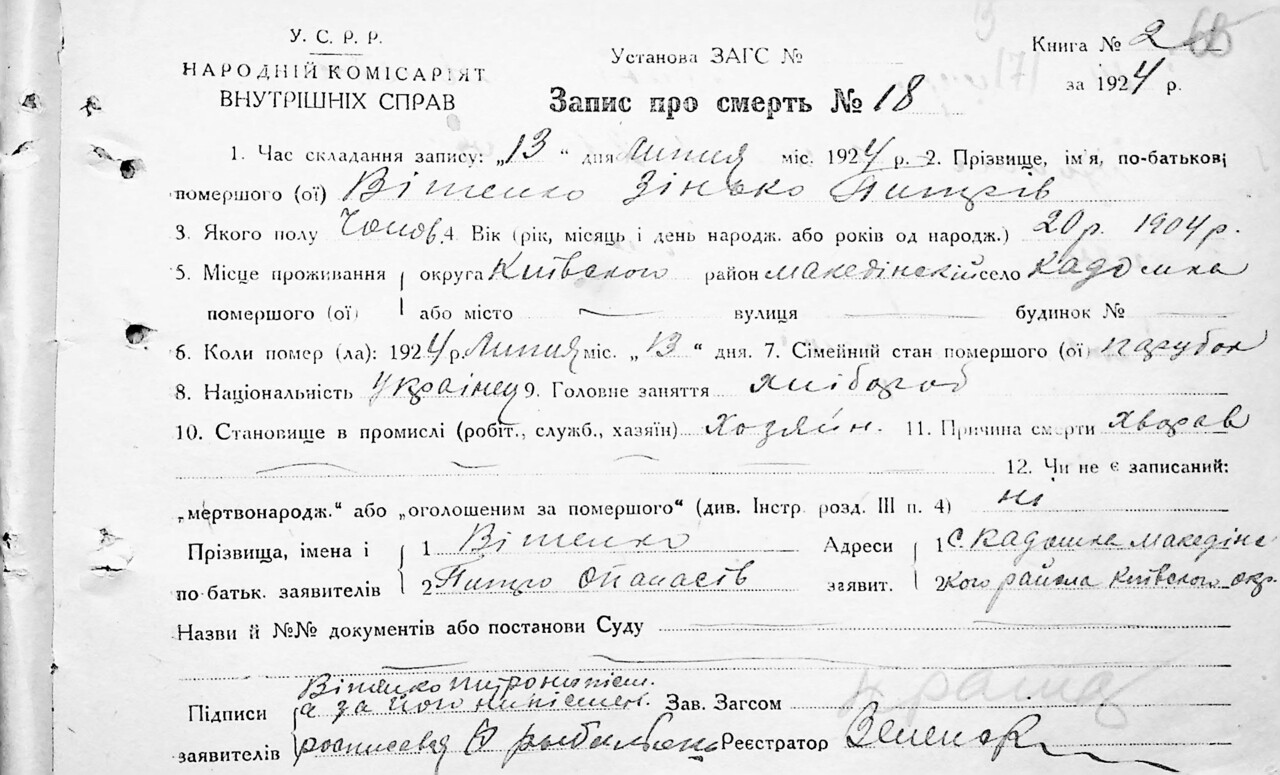 У. С. Р. Р.
НАРОДНІЙ КОМІСАРІЯТ
ВНУТРІШНІХ СПРАВ
Установа ЗАГС №
Книга № 2
за 1924 р.
Запис про смерть № 18
1. Час складання запису: „13“ дня Липня міс. 1924 р. 2. Прізвище, ім'я, по-батькові
помершого (ої) Вітенко Зінько Питрів
3. Якого полу Чолов. 4. Вік (рік, місяць і день народж. або років од народж.) 20 р. 1904 р.
5. Місце проживання округа Київского район Македінский село Кадомка
помершого (ої) або місто вулиця будинок №
6. Коли помер (ла): 1924 р. Липня міс. „13“ дня. 7. Сімейний стан помершого (ої) парубок
8. Національність Українец 9. Головне заняття хлібороб
10. Становище в промислі (робіт., служб., хазяїн) Хозяйн. 11. Причина смерти хворав
12. Чи не є записаний:
„мертвонародж.“ або „оголошеним за помершого“ (див. Інстр. розд. III п. 4) ні
Прізвища, імена і 1 Вітенко Адреси 1 с. Кадомка Македінс
по батьк. заявителів 2 Питро Опанасів заявит. 2 кого района Київского окр.
Назви й №№ документів або постанови Суду
Вітенко
Підписи а за його Зав. Загсом
заявителів росписевея Реєстратор